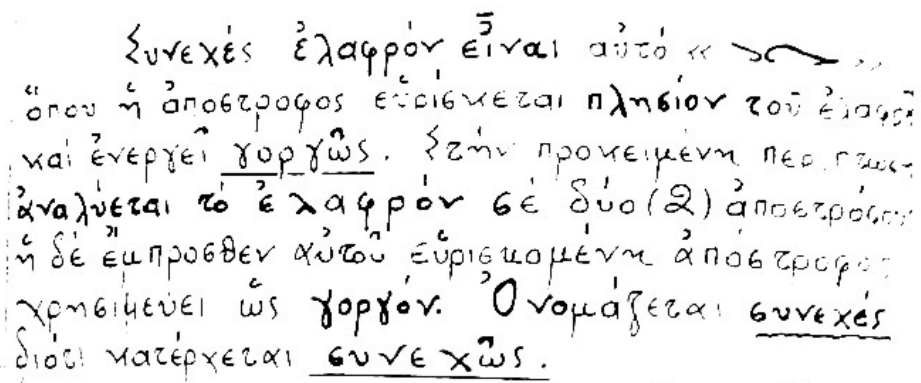 Συνεχές ἐλαφρόν εἶναι αὐτό «
ὅπου ἡ ἀπόστροφος εὑρίσκεται πλησίον τοῦ
καί ἐνεργεῖ γοργῶς. Στήν προκειμένη
ἀναλύεται τό ἐλαφρόν σέ δύο (2)
ἡ δέ ἔμπροσθεν αὐτοῦ εὑρισκομένη ἀπόστροφος
χρησιμεύει ὡς γοργόν. Ὀνομάζεται συνεχές
διότι κατέρχεται συνεχῶς.